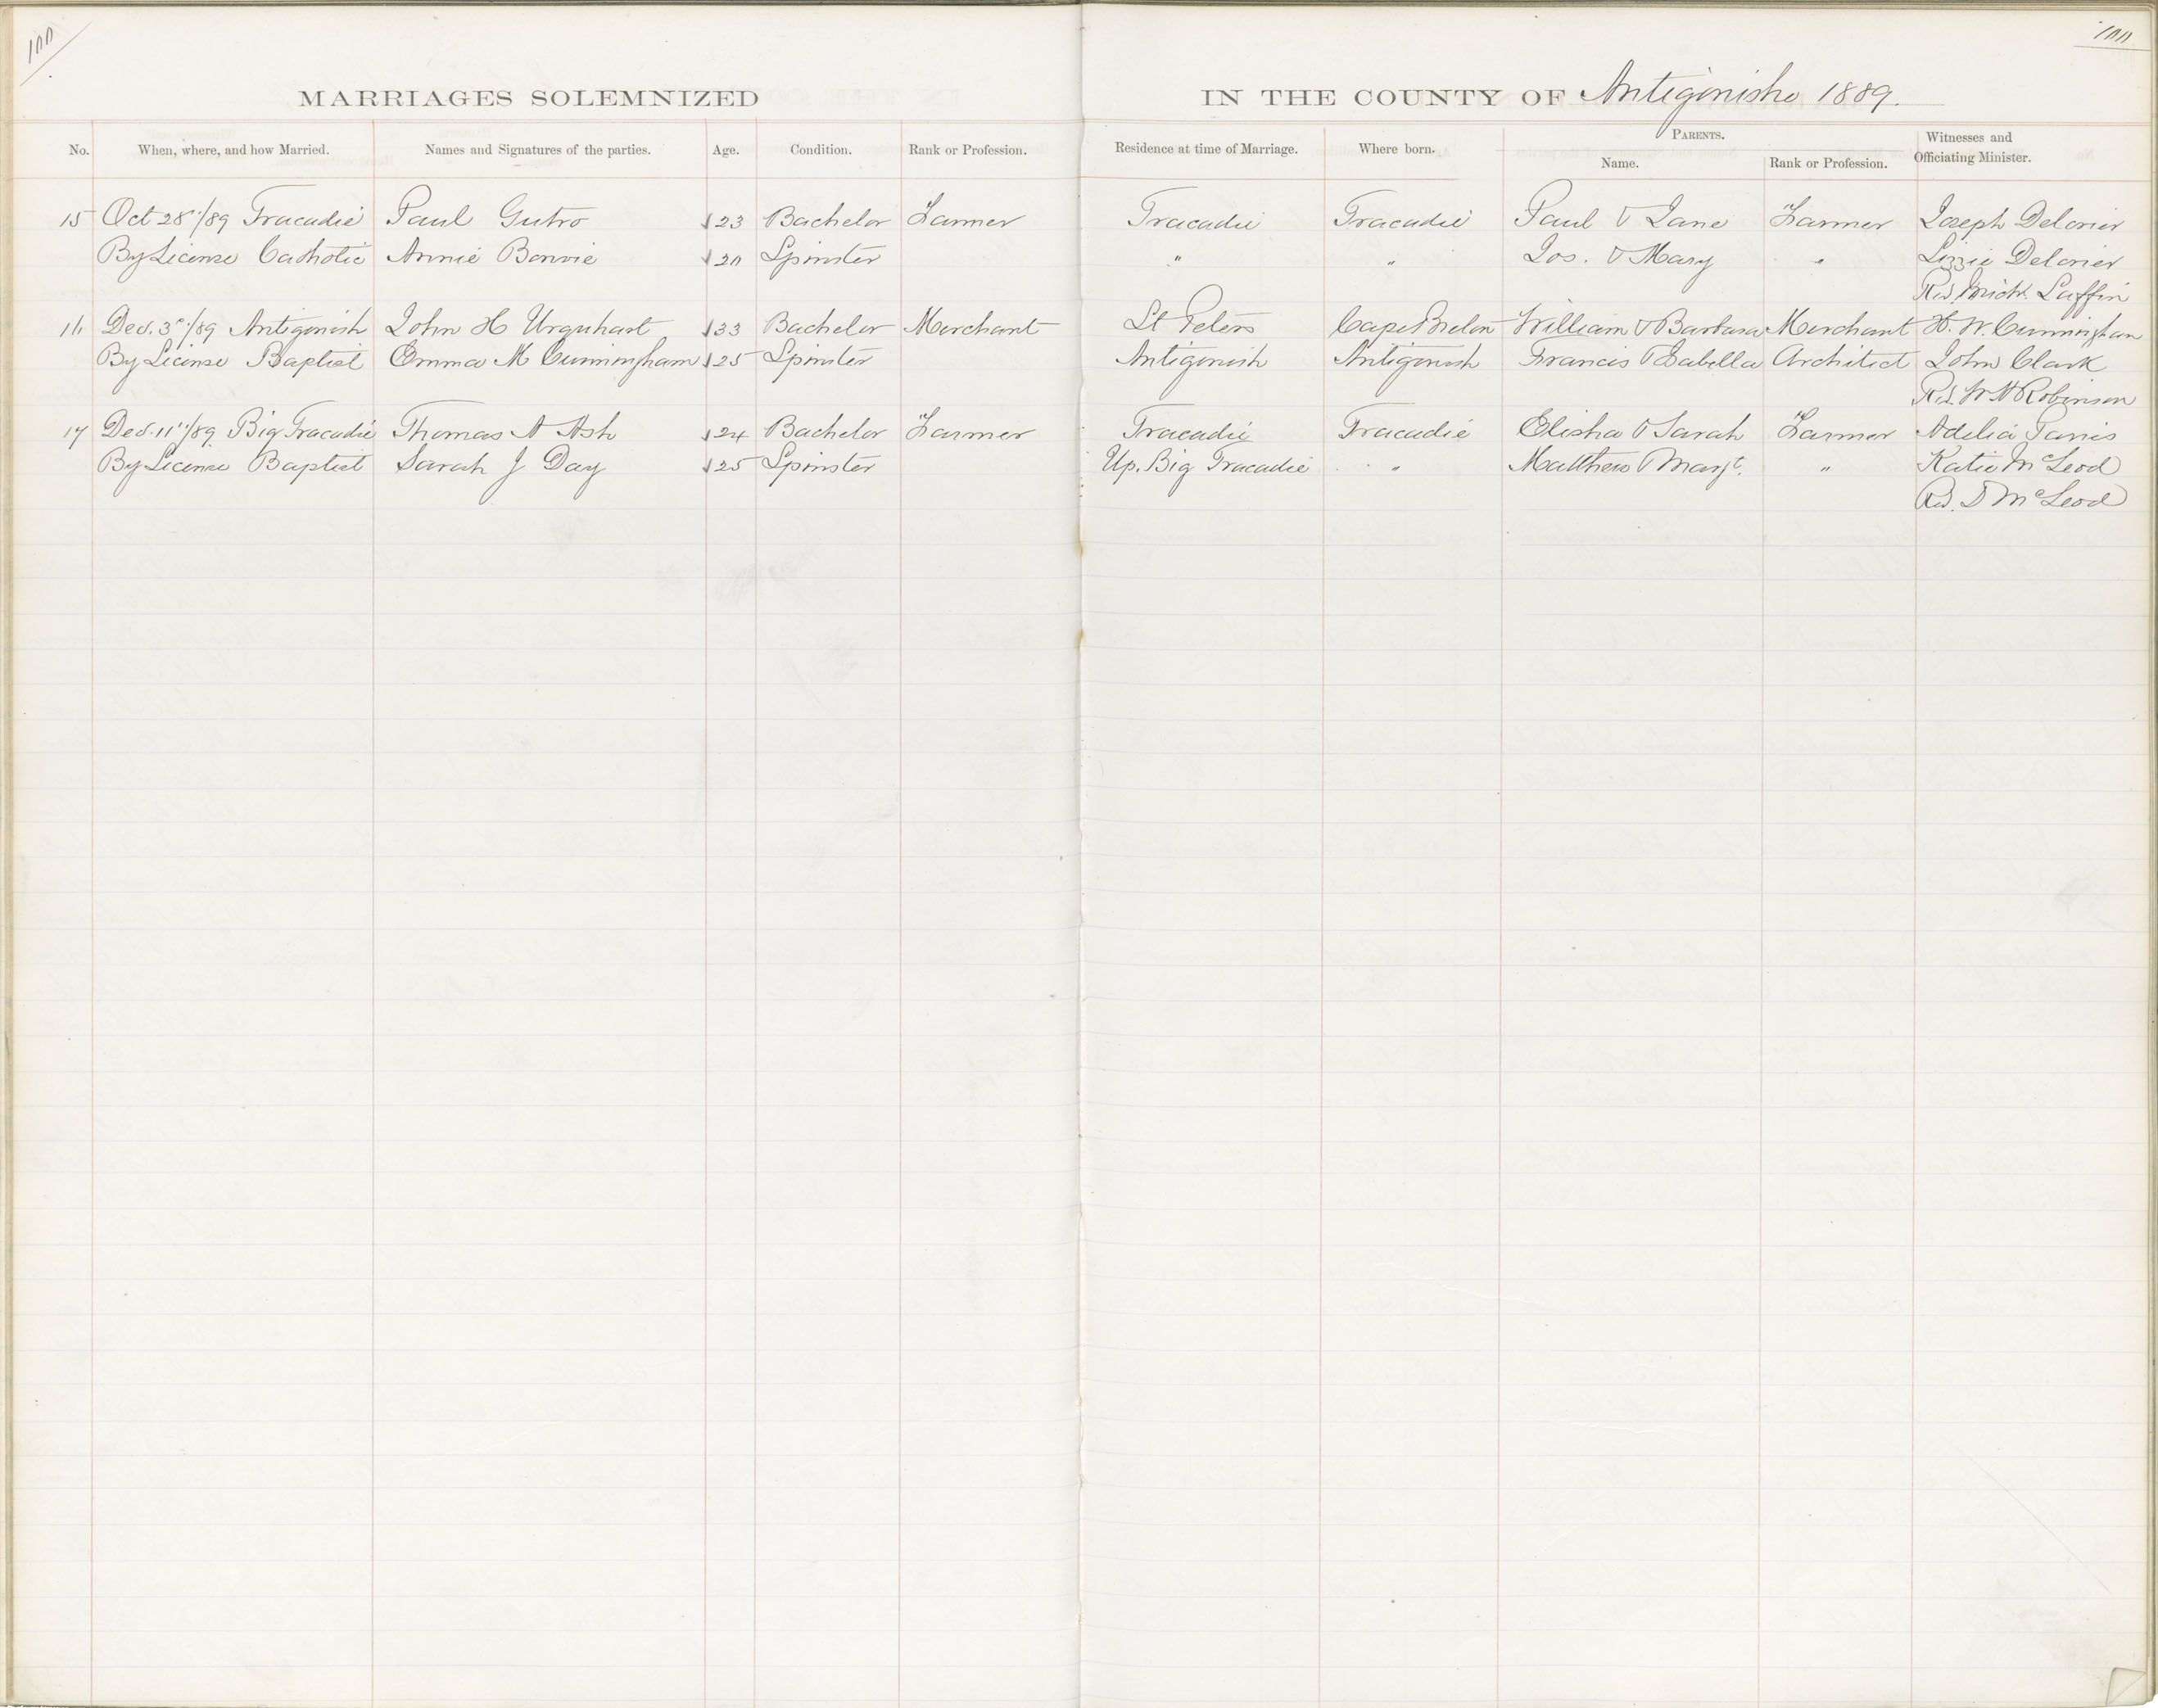 100
100
MARRIAGES SOLEMNIZED IN THE COUNTY OF Antigonishe 1889.
No. When, where, and how Married. Names and Signatures of the parties. Age. Condition. Rank or Profession. Residence at time of Marriage. Where born. PARENTS. Name. Rank or Profession. Witnesses and Officiating Minister.
15 Oct 28"/89 Tracadie Paul Gutro 23 Bachelor Farmer Tracadie Tracadie Paul & Jane Farmer Joseph Delorier
By License Catholic Annie Bonvie 20 Spinster " " Jos. & Mary " Lizzie Delorier
Rev. Mich. Laffin
16 Dec. 3"/89 Antigonish John H Urquhart 33 Bachelor Merchant St Peters Cape Breton William & Barbara Merchant H. W. Cunningham
By License Baptist Emma M Cunningham 25 Spinster Antigonish Antigonish Francis & Isabella Architect John Clark
Rev. W H Robinson
17 Dec. 11"/89 Big Tracadie Thomas A Ash 24 Bachelor Farmer Tracadie Tracadie Elisha & Sarah Farmer Adelia Parris
By License Baptist Sarah J Day 25 Spinster Up. Big Tracadie " Matthew & Margt. " Katie McLeod
Rev. D McLeod